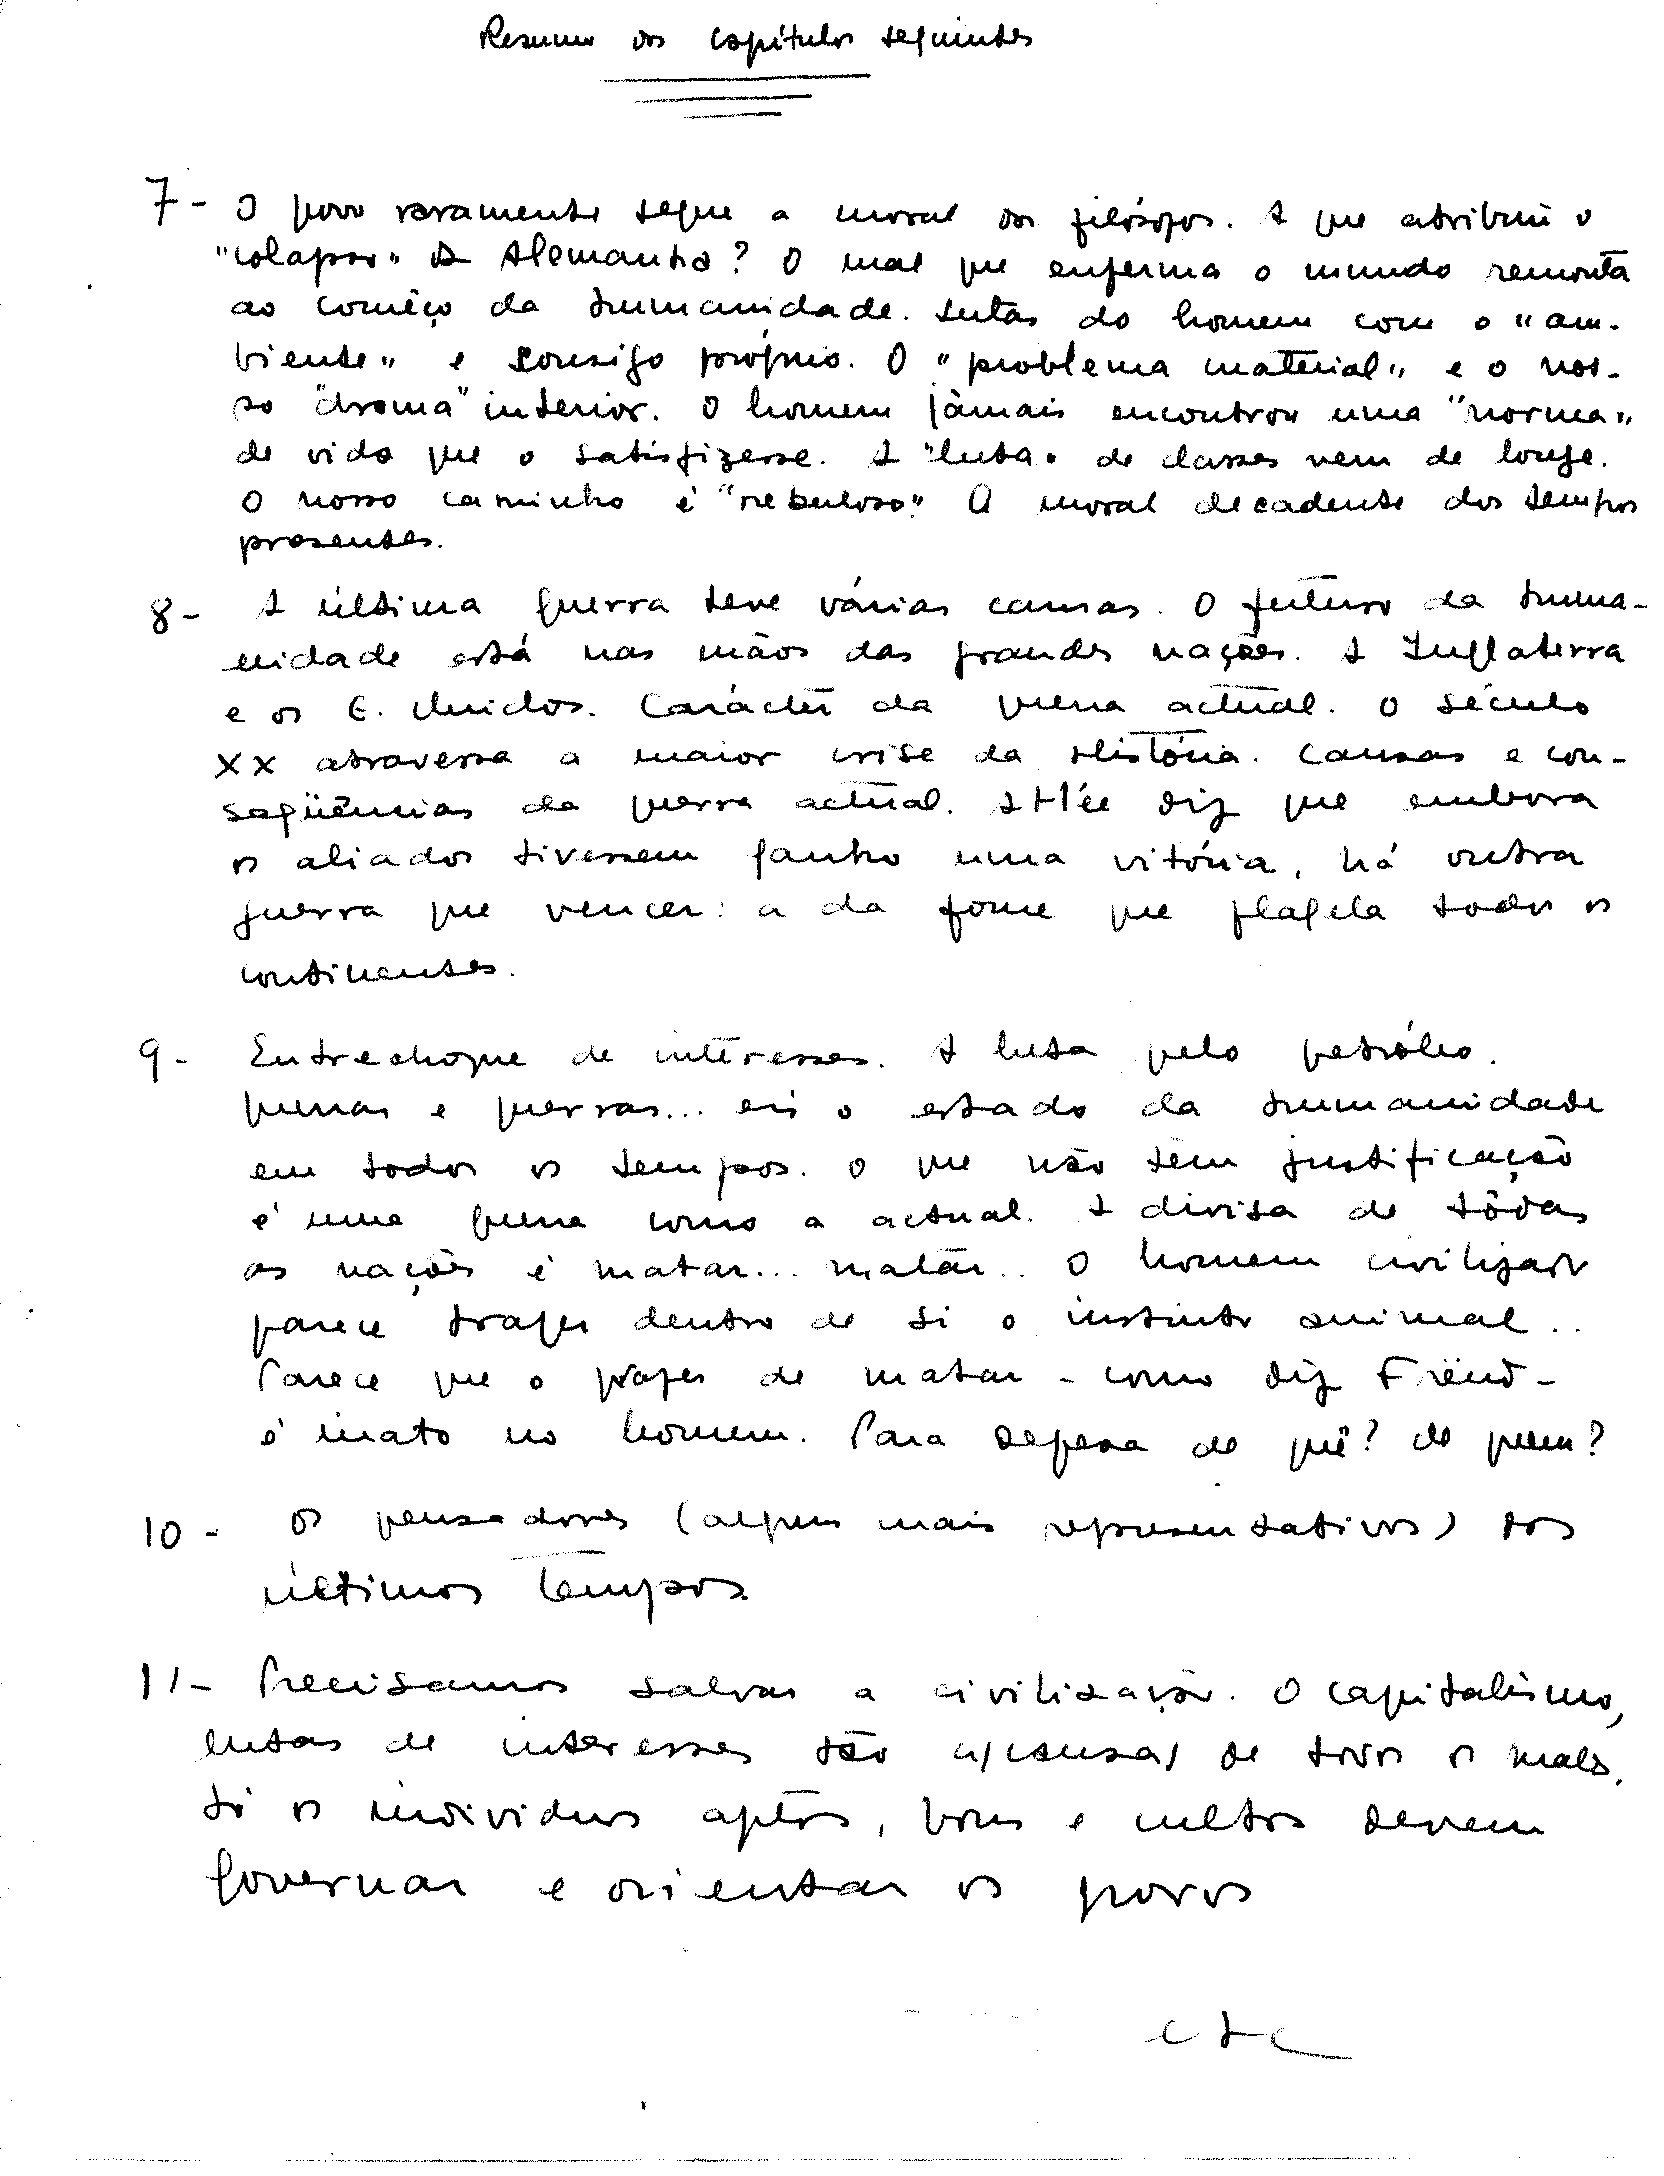 Resumo dos capítulos seguintes
7- O povo raramente segue a moral dos filósofos. A que atribuir o
"colapso" da Alemanha? O mal que enferma o mundo remonta
ao comêço da humanidade. Lutas do homem com o "am-
biente" e consigo próprio. O "problema material" e o nos-
so "drama" interior. O homem jàmais encontrou uma "norma"
de vida que o satisfizesse. A "luta" de classes vem de longe.
O nosso caminho é "nebuloso". A moral decadente dos tempos
presentes.
8- A última guerra teve várias causas. O futuro da huma-
nidade está nas mãos das grandes nações. A Inglaterra
e os E. Unidos. Carácter da guerra actual. O século
XX atravessa a maior crise da História. Causas e con-
seqüências da guerra actual. Attlée diz que embora
os aliados tivessem ganho uma vitória, há outra
guerra que vencer: a da fome que flagela todos os
continentes.
9- Entrechoque de interesses. A luta pelo petróleo.
Guerras e guerras... eis o estado da humanidade
em todos os tempos. O que não tem justificação
é uma guerra como a actual. A divisa de tôdas
as nações é matar... matar... O homem civilizado
parece trazer dentro de si o instinto animal..
Parece que o prazer de matar - como diz Freud -
é inato no homem. Para defesa de quê? de quem?
10- Os pensadores (alguns mais representativos) dos
últimos tempos
11- Precisamos salvar a civilização. O capitalismo,
lutas de interesses são a causa de todos os males.
Só os indivíduos aptos, bons e cultos devem
governar e orientar os povos
etc